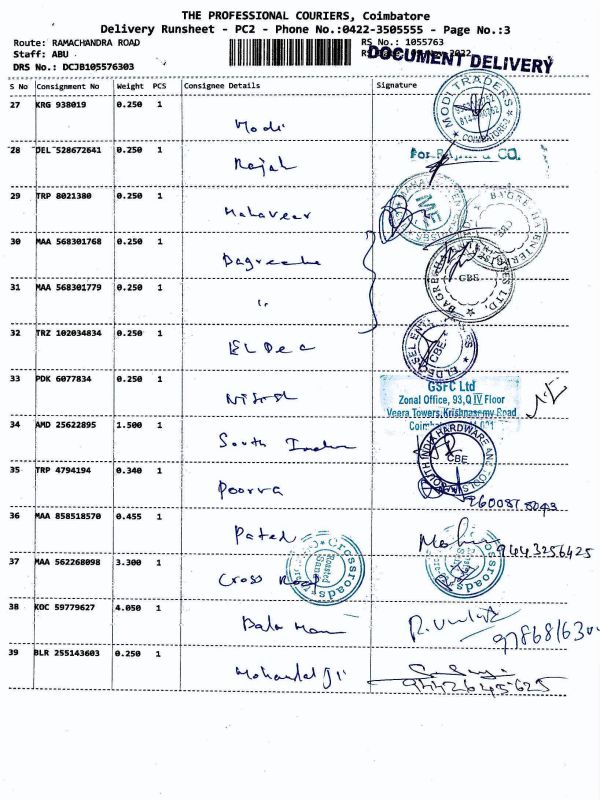 THE PROFESSIONAL COURIERS, Coimbatore
Delivery Runsheet - PC2 - Phone No.:0422-3505555 - Page No.:3
Route: RAMACHANDRA ROAD
RS No.: 1055763
Staff: ABU
2022
DOCUMENT DELIVERY
DRS No.: DCJB105576303
S No Consignment No Weight PCS Consignee Details Signature
27 KRG 938019 0.250 1 Modi
MODI TRADERS COIMBATORE
28 DEL 528672641 0.250 1 Rajah
For & CO.
29 TRP 8021380 0.250 1 Mahaveer
ME
30 MAA 568301768 0.250 1 Bagreecha
31 MAA 568301779 0.250 1 "
CBE
32 TRZ 102034834 0.250 1 ELDec
CBE
33 PDK 6077834 0.250 1
GSFC Ltd
Zonal Office, 93, Q IV Floor
Veera Towers, Krishnasamy Road
34 AMD 25622895 1.500 1 South India
SOUTH INDIA HARDWARE AND TOOLS CBE
35 TRP 4794194 0.340 1 Poorva
36 MAA 858518570 0.455 1 Patel
9443256425
37 MAA 562268098 3.300 1 Cross Road
Crossroads
Crossroads
38 KOC 59779627 4.050 1 Bala
39 BLR 255143603 0.250 1 Mohanlal Ji
9442645625